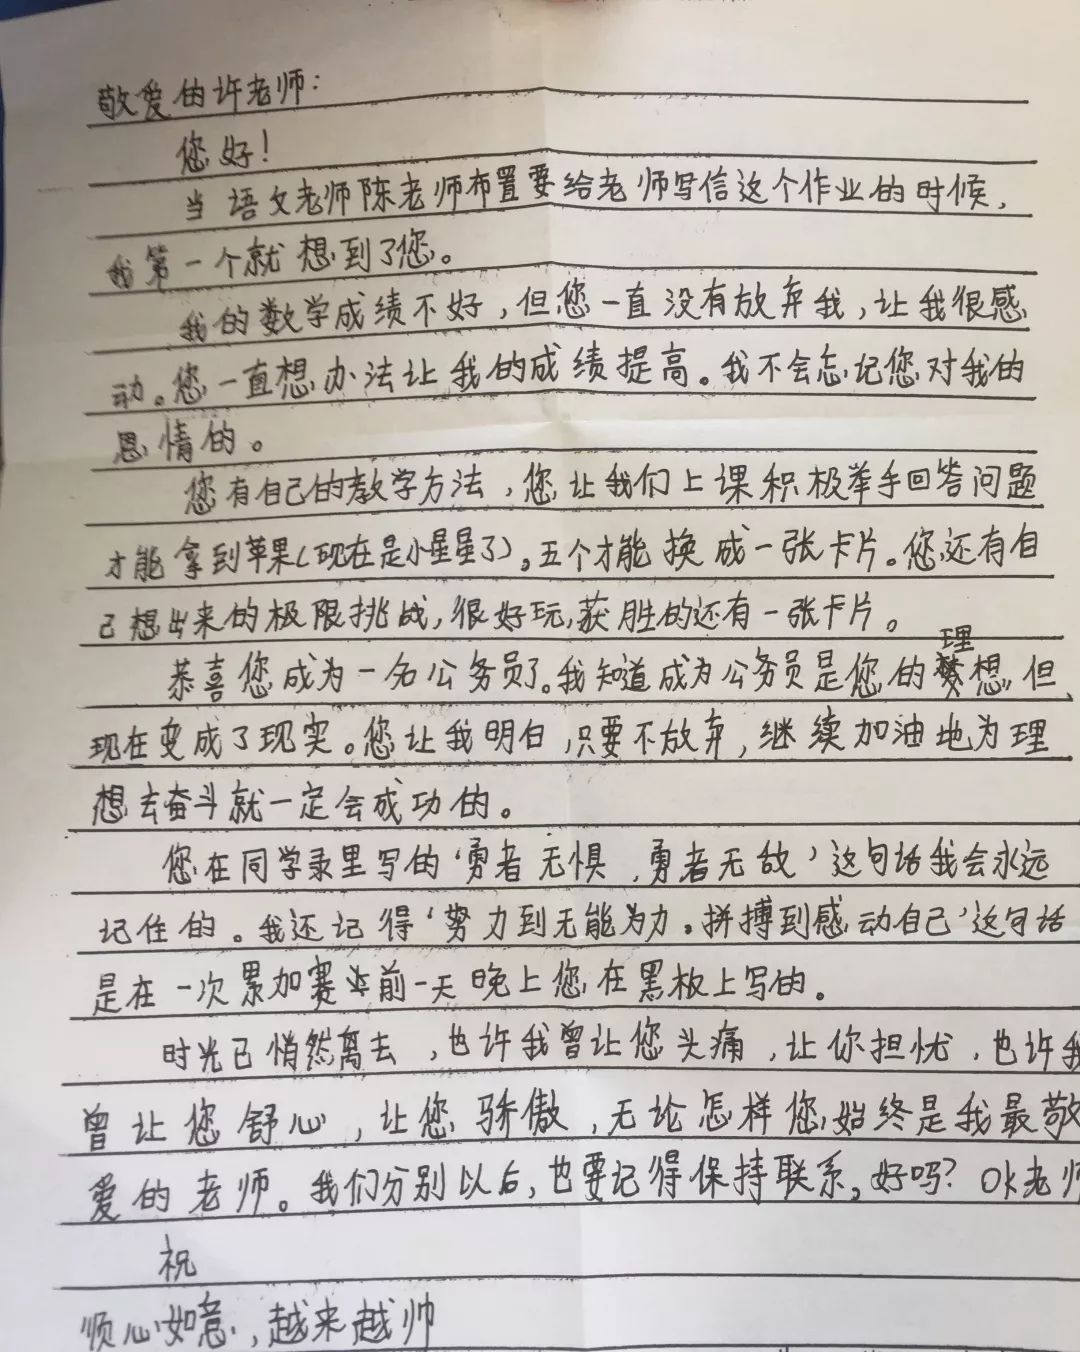 敬爱的许老师:
您好!
当语文老师陈老师布置要给老师写信这个作业的时候,
我第一个就想到了您。
我的数学成绩不好,但您一直没有放弃我,让我很感
动。您一直想办法让我的成绩提高。我不会忘记您对我的
恩情的。
您有自己的教学方法,您让我们上课积极举手回答问题
才能拿到苹果(现在是小星星了)。五个才能换成一张卡片。您还有自
己想出来的极限挑战,很好玩,获胜的还有一张卡片。
恭喜您成为一名公务员了。我知道成为公务员是您的理想,但
现在变成了现实。您让我明白,只要不放弃,继续加油地为理
想去奋斗就一定会成功的。
您在同学录里写的‘勇者无惧,勇者无敌’这句话我会永远
记住的。我还记得‘努力到无能为力。拼搏到感动自己’这句话
是在一次累加赛前一天晚上您在黑板上写的。
时光已悄然离去,也许我曾让您头痛,让你担忧,也许我
曾让您舒心,让您骄傲,无论怎样您始终是我最敬
爱的老师。我们分别以后,也要记得保持联系。好吗?OK老师
祝
顺心如意,越来越帅